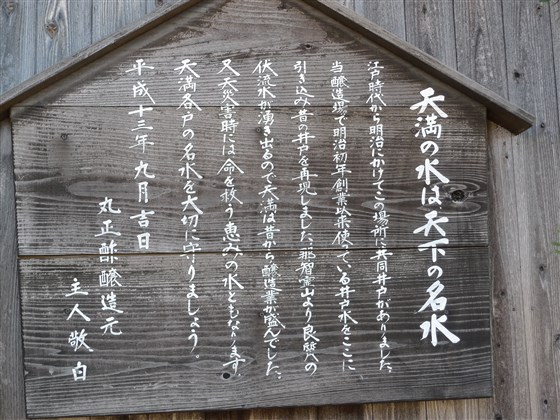 天満の水は天下の名水
江戸時代から明治にかけてこの場所に共同井戸がありました。
当醸造場で明治初年創業以来使っている井戸水をここに
引き込み昔の井戸を再現しました。那智霊山より良質の
伏流水が湧き出るので天満は昔から醸造業が盛んでした。
又天災害時には命を救う恵みの水ともなります
天満各戸の名水を大切に守りましょう。
平成十三年九月吉日
丸正酢醸造元
主人敬白